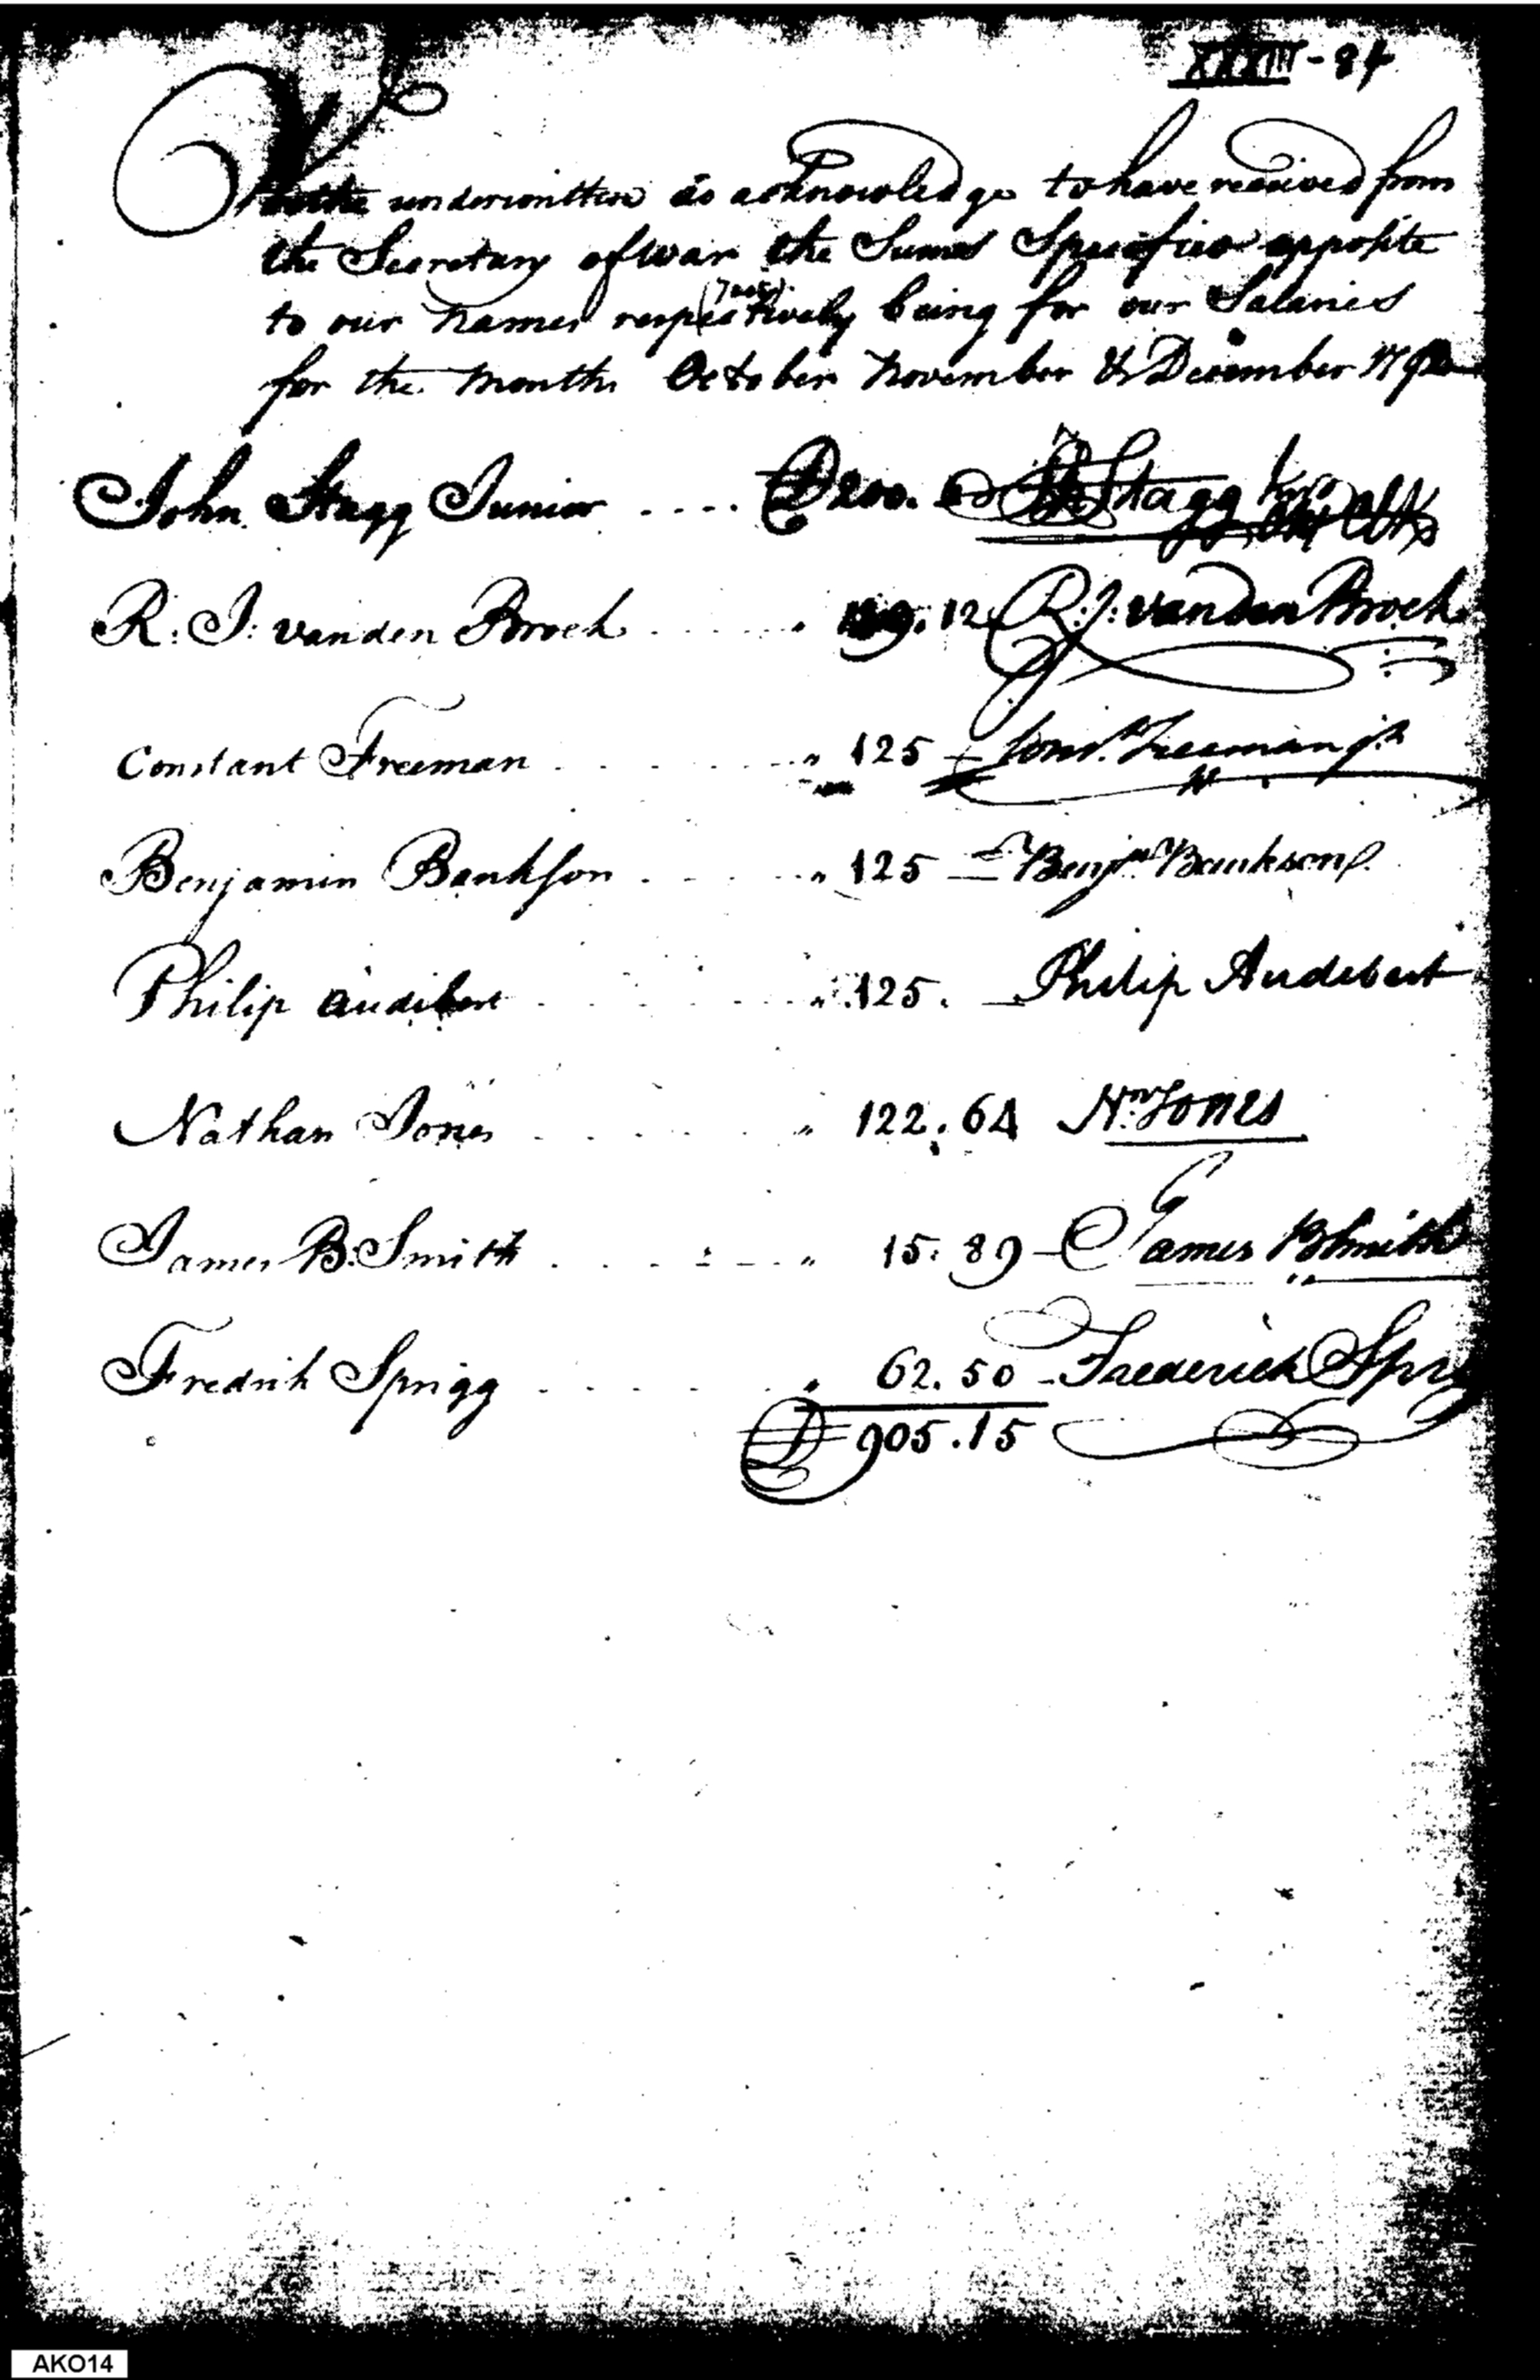 XXXIII - 84
We the underwritten do acknowledge to have received from
the Secretary of War the Sums Specified opposite
to our names respectively being for our Salaries
for the months October November & December
John Stagg Junior .... D 200. Stagg
R: J: vanden Broek ..... 129.12 R: J: vanden Broek
Constant Freeman ..... " 125 - Const. Freeman jr
Benjamin Bankson .... " 125 - Benjn Bankson
Philip Audibert ..... " 125. - Philip Audebert
Nathan Jones ..... " 122.64 Nn Jones
James B: Smith ..... " 15.89 - James B Smith
Fredrik Sprigg ..... " 62.50 - Frederick
D 905.15
AKO14